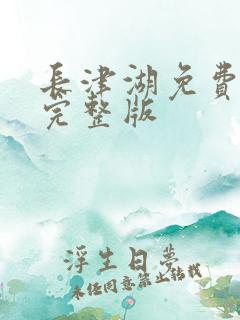 長津湖免費
完整版
浮生日夢
未經同意禁止轉載